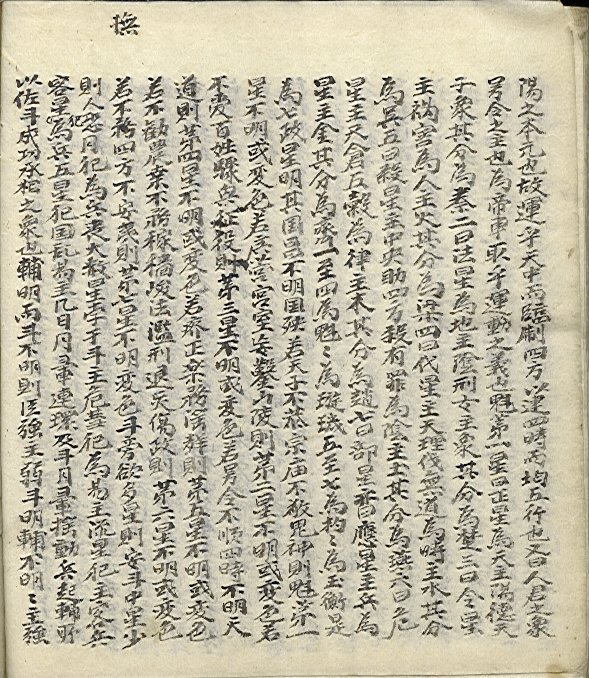 撫
陽之本元也故運乎天中而臨制四方以建四時而均五行也又曰人君之象
号令之主也為帝車取乎運動之義也魁第一星曰正星為天主陽德天
子象其分為秦二曰法星為地主陰刑女主象其分為楚三曰令星
主禍害為人主火其分為梁四曰伐星主天理伐無道為時主水其分
為吳五曰殺星主中央助四方殺有罪為陰主土其分為燕六曰危
星主天倉五穀為律主木其分為趙七曰部星亦曰應星主兵為
星主金其分為齊一至四為魁〻為璇璣五至七為杓〻為玉衡是
為七政星明其国昌不明国殃若天子不恭宗庙不敬鬼神則魁第一
星不明或变色若主営宮室妄鑿山陵則第二星不明或变色若
不愛百姓驟興征役則第三星不明或变色若号令不順四時不明天
道則第四星不明或变色若廃正楽務淫聲則第五星不明或变色
若不勧農桒不務稼穡峻法濫刑退傷政則第六星不明或变色
若不撫四方不安夷則第七星不明变色斗旁欲多星則安斗中星少
則人恐月犯為兵喪大赦星孛于斗主危彗犯為易主流星犯主客兵
客星犯為兵五星犯国乱易主凡日月暈連環及斗月暈揺動兵起輔明
以佐斗成功丞相之象也輔明而斗不明則臣強主弱斗明輔不明〻主強